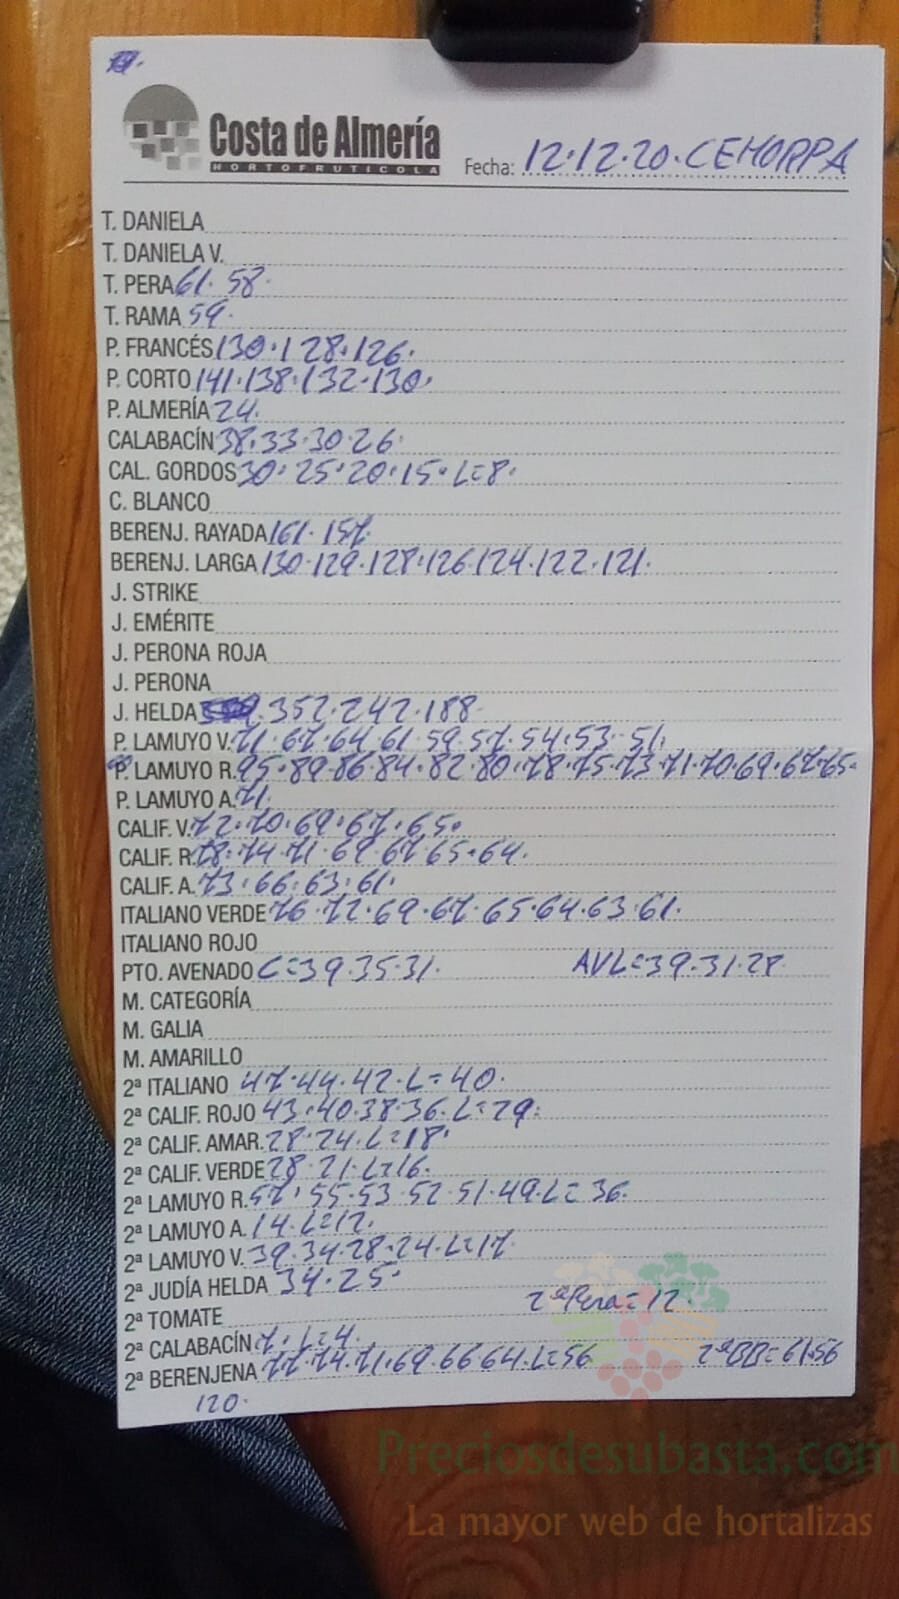 Costa de Almería
HORTOFRUTICOLA
Fecha: 12·12·20·CEHORPA
T. DANIELA
T. DANIELA V.
T. PERA 61· 58·
T. RAMA 59·
P. FRANCÉS 130·128·126·
P. CORTO 141·138·132·130·
P. ALMERÍA 24·
CALABACÍN 38·33·30·26·
CAL. GORDOS 30·25·20·15·L=8·
C. BLANCO
BERENJ. RAYADA 161·157·
BERENJ. LARGA 130·129·128·126·124·122·121·
J. STRIKE
J. EMÉRITE
J. PERONA ROJA
J. PERONA
J. HELDA 352·242·188·
P. LAMUYO V. 71·67·64·61·59·57·54·53·51·
P. LAMUYO R. 95·89·86·84·82·80·78·75·73·71·70·69·67·65·
P. LAMUYO A. 71·
CALIF. V. 72·70·69·67·65·
CALIF. R. 78·74·71·69·67·65·64·
CALIF. A. 73·66·63·61·
ITALIANO VERDE 76·72·69·67·65·64·63·61·
ITALIANO ROJO
PTO. AVENADO C=39·35·31· AVL=39·31·28·
M. CATEGORÍA
M. GALIA
M. AMARILLO
2ª ITALIANO 47·44·42·L=40·
2ª CALIF. ROJO 43·40·38·36·L=29·
2ª CALIF. AMAR. 28·24·L=18·
2ª CALIF. VERDE 28·21·L=16·
2ª LAMUYO R. 57·55·53·52·51·49·L=36·
2ª LAMUYO A. 14·L=12·
2ª LAMUYO V. 39·34·28·24·L=17·
2ª JUDÍA HELDA 34·25·
2ª TOMATE 2ª Pera=12·
2ª CALABACÍN 7·L=4·
2ª BERENJENA 77·74·71·69·66·64·L=56 2ªBB=61·56
120·
Preciosdesubasta.com
La mayor web de hortalizas